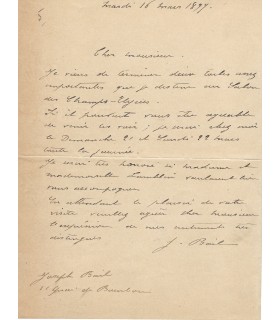 Mardi 16 mars 1897.
Cher monsieur.
Je viens de terminer deux toiles assez
importantes que je destine au Salon
des Champs-Elysées.
S'il pouvait vous être agréable
de venir les voir ; je serai chez moi
le Dimanche 21 et Lundi 22 mars
toute la journée.
Je serai très honoré si madame et
mademoiselle veulent bien
vous accompagner.
En attendant le plaisir de votre
visite veuillez agréer cher monsieur
l'expression de mes sentiments les
distingués
J. Bail
Joseph Bail
Quai de Bourbon